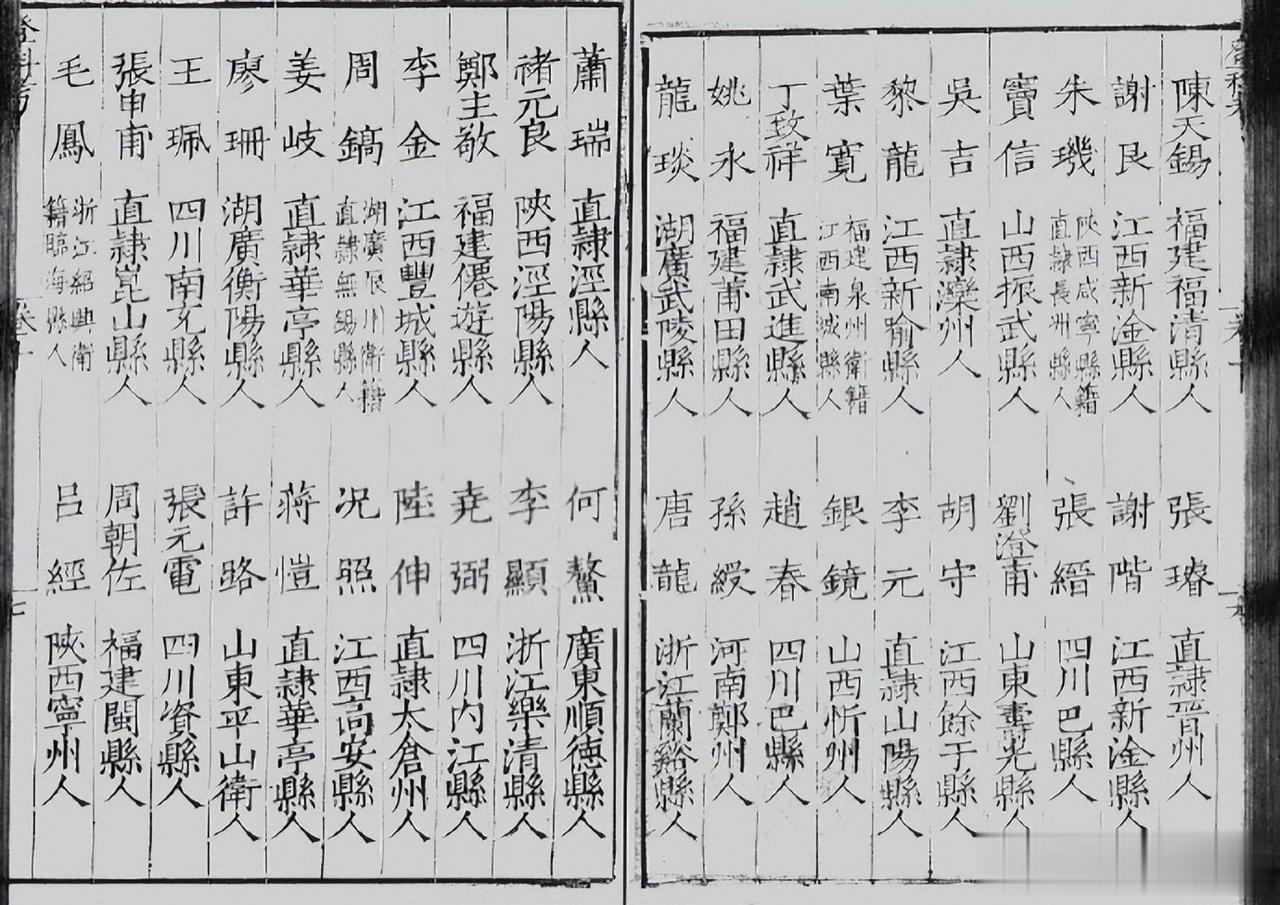 陳天錫 福建福清縣人 張璿 直隸晉州人
謝艮 江西新淦縣人 謝階 江西新淦縣人
朱璣 陝西咸寧縣籍
直隸長洲縣人
張縉 四川巴縣人
竇信 山西振武縣人 劉澄甫 山東壽光縣人
吳吉 直隸灤州人 胡守 江西餘于縣人
黎龍 江西新喻縣人 李元 直隸山陽縣人
葉寬 福建泉州衛籍
江西南城縣人
銀鏡 山西忻州人
丁致祥 直隸武進縣人 趙春 四川巴縣人
姚永 福建莆田縣人 孫綬 河南鄭州人
龍琰 湖廣武陵縣人 唐龍 浙江蘭谿縣人
蕭瑞 直隸涇縣人 何鰲 廣東順德縣人
褚元良 陝西涇陽縣人 李顯 浙江樂清縣人
鄭主敬 福建僊遊縣人 堯弼 四川內江縣人
李金 江西豐城縣人 陸伸 直隸太倉州人
周鎬 湖廣辰州衛籍
直隸無錫縣人
况照 江西高安縣人
姜岐 直隸華亭縣人 蔣愷 直隸華亭縣人
廖珊 湖廣衡陽縣人 許路 山東平山衛人
王珮 四川南充縣人 張元電 四川資縣人
張申甫 直隸崑山縣人 周朝佐 福建閩縣人
毛鳳 浙江紹興衛
籍臨海縣人
呂經 陝西寧州人